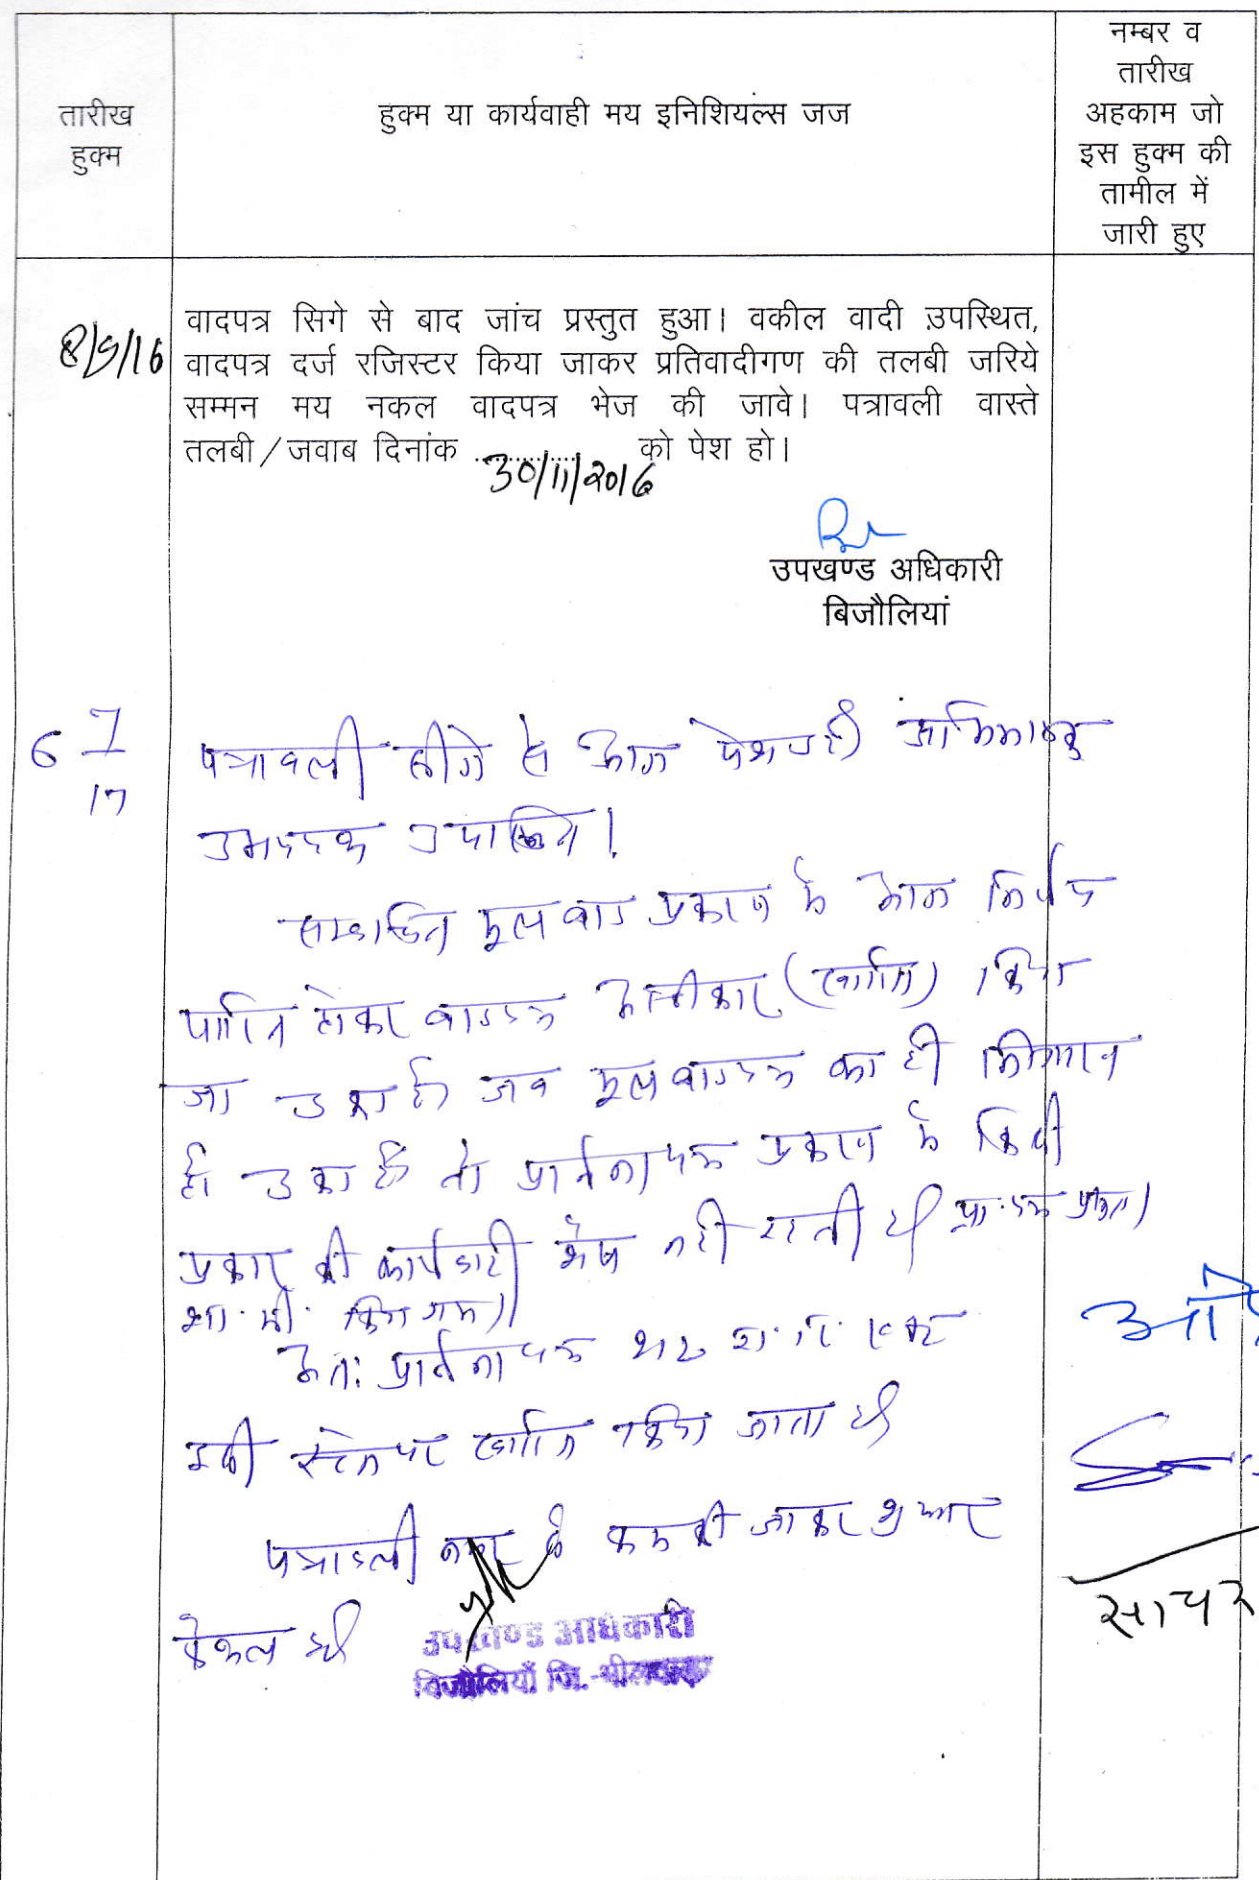 तारीख
हुक्म
हुक्म या कार्यवाही मय इनिशियल्स जज
नम्बर व
तारीख
अहकाम जो
इस हुक्म की
तामील में
जारी हुए
8/9/16
वादपत्र सिगे से बाद जांच प्रस्तुत हुआ। वकील वादी उपस्थित,
वादपत्र दर्ज रजिस्टर किया जाकर प्रतिवादीगण की तलबी जरिये
सम्मन मय नकल वादपत्र भेज की जावे। पत्रावली वास्ते
तलबी/जवाब दिनांक .............. को पेश हो।
30/11/2016
उपखण्ड अधिकारी
बिजौलियां
6 7
17
पत्रावली सीगे से आज पेश हुई अभिभाषक
उभयपक्ष उपस्थित।
सम्बन्धित मूल वाद प्रकरण में आज निर्णय
पारित होकर वादपत्र अस्वीकार (खारिज) किया
जा चुका है। जब मूल वादपत्र का ही निस्तारण
हो चुका है तो प्रार्थनापत्र प्रकरण में किसी
प्रकार की कार्यवाही शेष नहीं रहती है
अतः प्रार्थनापत्र
इसी स्टेज पर खारिज किया जाता है
पत्रावली नम्बर से कम की जाकर शुमार
फैसल हो
उपखण्ड अधिकारी
बिजौलियाँ जि.-भीलवाड़ा